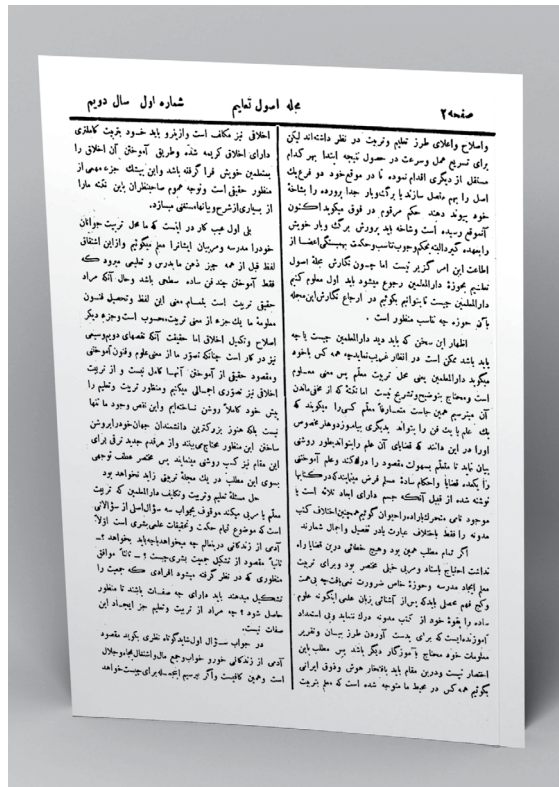 صفحه ۲
مجله اصول تعلیم
شماره اول سال دویم
واصلاح واعلای طرز تعلیم وتربیت در نظر داشته‌اند لیکن
برای تسریع عمل وسرعت در حصول نتیجه ابتدا بهر کدام
مستقل از دیگری اقدام نموده تا در موقع خود دو فرع یك
اصل را بهم متصل سازند یا برگ وبار جدا پرورده را بشاخهٔ
خود پیوند دهند حکم مرقوم در فوق میگوید اکنون
آنموقع رسیده است وشاخه باید پرورش برگ وبار خویش
رابعهده گیرد البته بحکم وجوب تناسب وحکمت بهبستگی اعضا از
اطاعت این امر گزیر نیست اما چون نگارش مجلهٔ اصول
تعلیم بحوزهٔ دارالمعلمین رجوع میشود باید اول معلوم کنیم
دارالمعلمین چیست تا بتوانیم بگوئیم در ارجاع نگارش این مجله
بآن حوزه چه تناسب منظور است .
اظهار این سخن که باید دید دارالمعلمین چیست یا چه
باید باشد ممکن است در انظار غریب نماید چه همه کس باخود
میگوید دارالمعلمین یعنی محل تربیت معلم پس معنی معلوم
است ومحتاج بتوضیح وتشریح نیست اما نکتهٔ که از مخفی ماندن
آن میترسیم همین جاست متعارفاً معلم کسی را میگویند که
یك علم یا یك فن را بتواند بدیگری بیاموزد وهنر مخصوص
اورا در این دانند که قضایای آن علم را بتواند بطور روشنی
بیان نماید تا متعلم بسهولت مقصود را درك کند وعلم آموختنی
را یکعده قضایا واحکام سادهٔ مسلم فرض مینمایند که در کتابها
نوشته شده از قبیل آنکه جسم دارای ابعاد ثلاثه است یا
موجود نامی متحرك باراده را حیوان گوئیم همچنین اختلاف کتب
مدونه را فقط باختلاف عبارت یا در تفصیل واجمال شمارند
اگر تمام مطلب همین بود وهیچ خطائی درین قضایا راه
نداشت احتیاج باستاد ومربی خیلی مختصر بود وبرای تربیت
معلم ایجاد مدرسه وحوزهٔ خاص ضرورت نمی‌یافت چه بی همت
وکج فهم محصلی باید که پس از آشنائی بزبان علمی اینگونه علوم
ساده را بقوهٔ خود از کتب مدونه درك ننماید وبی استعداد
آموزنده‌ایست که برای بدست آوردن طرز بیان وتقریر
معلومات خود محتاج بآموزگار دیگر باشد پس مطلب باین
اختصار نیست ودرین مقام باید بافتخار هوش وذوق ایرانی
بگوئیم همه کس در محیط ما متوجه شده است که معلم بتربیت
اخلاقی نیز مکلف است وازینرو باید خود بتربیت کاملتری
دارای اخلاق کریمه شده وطریق آموختن آن اخلاق را
بمتعلمین خویش فرا گرفته باشد واین بیشك جزء مهمی از
منظور حقیقی است وتوجه عموم صاحبنظران باین نکته مارا
از بسیاری از شرح وبیانها مستغنی میسازد.
بلی اول عیب کار در اینست که ما محل تربیت جوانان
خودرا مدرسه ومربیان ایشانرا معلم میگوئیم وازاین اشتقاق
لفظ قبل از همه چیز ذهن ما بدرس و تعلیمی میرود که
فقط آموختن چند فن ساده سطحی باشد وحال آنکه مراد
حقیقی تربیت است بتمام معنی این لفظ وتحصیل فنون
معلومهٔ ما یك جزء از معنی تربیت محسوب است وجزء دیگر
اصلاح وتکمیل اخلاق اما حقیقت آنکه نقصهای دویم وسیمی
نیز در کار است چنانکه تصور ما از معنی علوم وفنون آموختنی
ومقصود حقیقی از آموختن آنها کامل نیست و از تربیت
اخلاقی نیز تصوری اجمالی میکنیم ومنظور تربیت وتعلیم را
پیش خود کاملاً روشن نساخته‌ایم واین نقص وجود ما تنها
نیست بلکه هنوز بزرگترین دانشمندان جهان خودرا بروشن
ساختن این منظور محتاج می‌بینند واز هر قدم جدید ترقی برای
این مقام نیز کسب روشنی مینمایند پس مختصر عطف توجهی
بسوی این مطلب در یك مجلهٔ تربیتی زاید نخواهد بود
حل مسئلهٔ تعلیم وتربیت وتکالیف دارالمعلمین که تربیت
معلم یا مربی میکند موقوف بجواب سه سؤال اصلی از سؤالاتی
است که موضوع تمام حکمت وتحقیقات علمی بشری است اولاً
آدمی از زندگانی درینعالم چه میخواهد یا چه باید بخواهد ؟ ـ
ثانیاً مقصود از تشکیل جمعیت بشری چیست ؟ ـ ثالثاً موافق
منظوری که در نظر گرفته میشود افرادی که جمعیت را
تشکیل میدهند باید دارای چه صفات باشند تا منظور
حاصل شود ؟ چه مراد از تربیت وتعلیم جز ایجاد این
صفات نیست.
در جواب سؤال اول شاید کوتاه نظری بگوید مقصود
آدمی از زندگانی خور و خواب وجمع مال واشتغال بجاه وجلال
است وهمین کافیست واگر بپرسیم اینجمله برای چیست خواهد